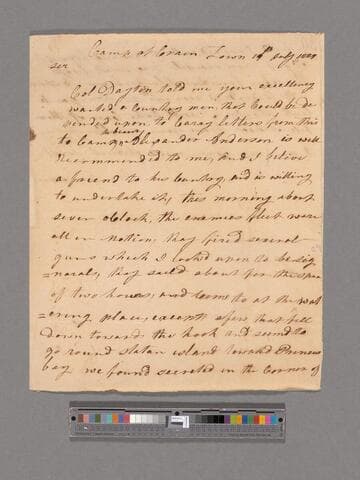 Camp at Crain Town 19th July
Sir
Col Dayton told me your excellency
wanted a Countrey man, that Could be de
pended upon to Carry letters from this
to Camp, the bearer Alexander Anderson is well
Recommended to me, and I believe
a friend to his Countrey and is willing
to undertake it, this morning about
seven oClock, the enemies fleet were
all in motion, they fired several
guns which I looked upon to be sig
=nerals, they saild about for the space
of two howers, and Came to at the wat
=ering place, except a few that fell
down towards the hook and seemd to
go round Statan island toward Princes
bay we found secreted in the Corner of